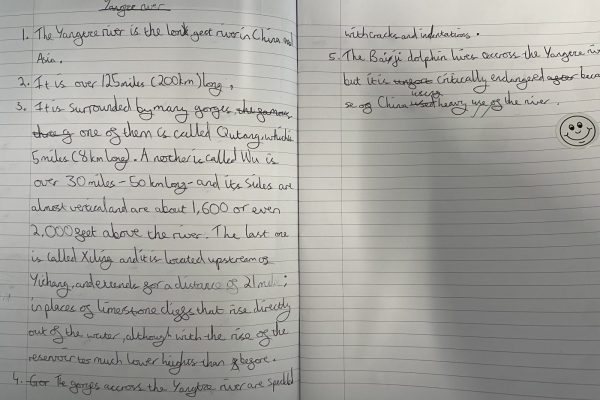 Yangze river
1. The Yangze river is the longest river in China and
Asia.
2. It is over 125 miles (200km) long.
3. It is surrounded by many gorges, the famous
three g one of them is called Qutang, which is
5 miles (8 km long). Another is called Wu is
over 30 miles - 50 km long - and its sides are
almost vertical and are about 1,600 or even
2,000 feet above the river. The last one
is called Xiling and it is located upstream of
Yichang, and extends for a distance of 21 mile;
in places of limerstone cliffs that rise directly
out of the water, although with the rise of the
reservoir to much lower heights than before.
4. Gor The gorges accross the Yangtze river are speckled
with cracks and indentations.
5. The Baiji dolphin lives accross the Yangeze riv
but it is critically endangered beca
se of China using heavy use of the river.